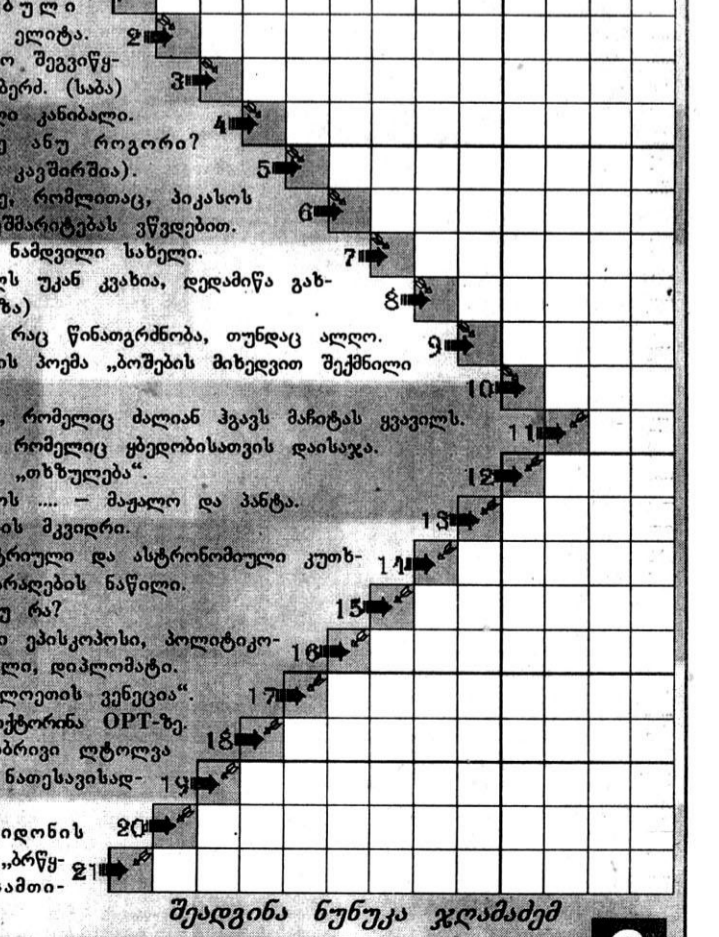 ბული
ელიტა.
2
ო შეგვიწყ-
3
ბერძ. (საბა)
ლი კანიბალი.
4
ე ანუ როგორი?
5
კავშირშია).
ე, რომლითაც, პიკასოს
6
შმარიტებას ვწვდებით.
ნამდვილი სახელი.
7
ლს უკან კვახია, დედამიწა გახ-
8
ზა)
რაც წინათგრძნობა, თუნდაც ალღო.
9
ის პოემა „ბოშების მიხედვით შექმნილი
10
, რომელიც ძალიან ჰგავს მაჩიტას ყვავილს.
11
რომელიც ყბედობისათვის დაისაჯა.
„თხზულება“.
12
ოს .... – მაჟალო და პანტა.
13
ის მკვიდრი.
ტრიული და ასტრონომიული კუთხ-
14
რაღების ნაწილი.
15
უ რა?
ი ეპისკოპოსი, პოლიტიკო-
16
ლი, დიპლომატი.
ლოეთის ვენეცია“.
17
ქტორინა ОРТ-ზე.
18
ბრივი ლტოლვა
ნათესავისად-
19
იდონის
20
„ბრწყ-
21
ამთი-
შეადგინა ნუნუკა ჯღამაძემ